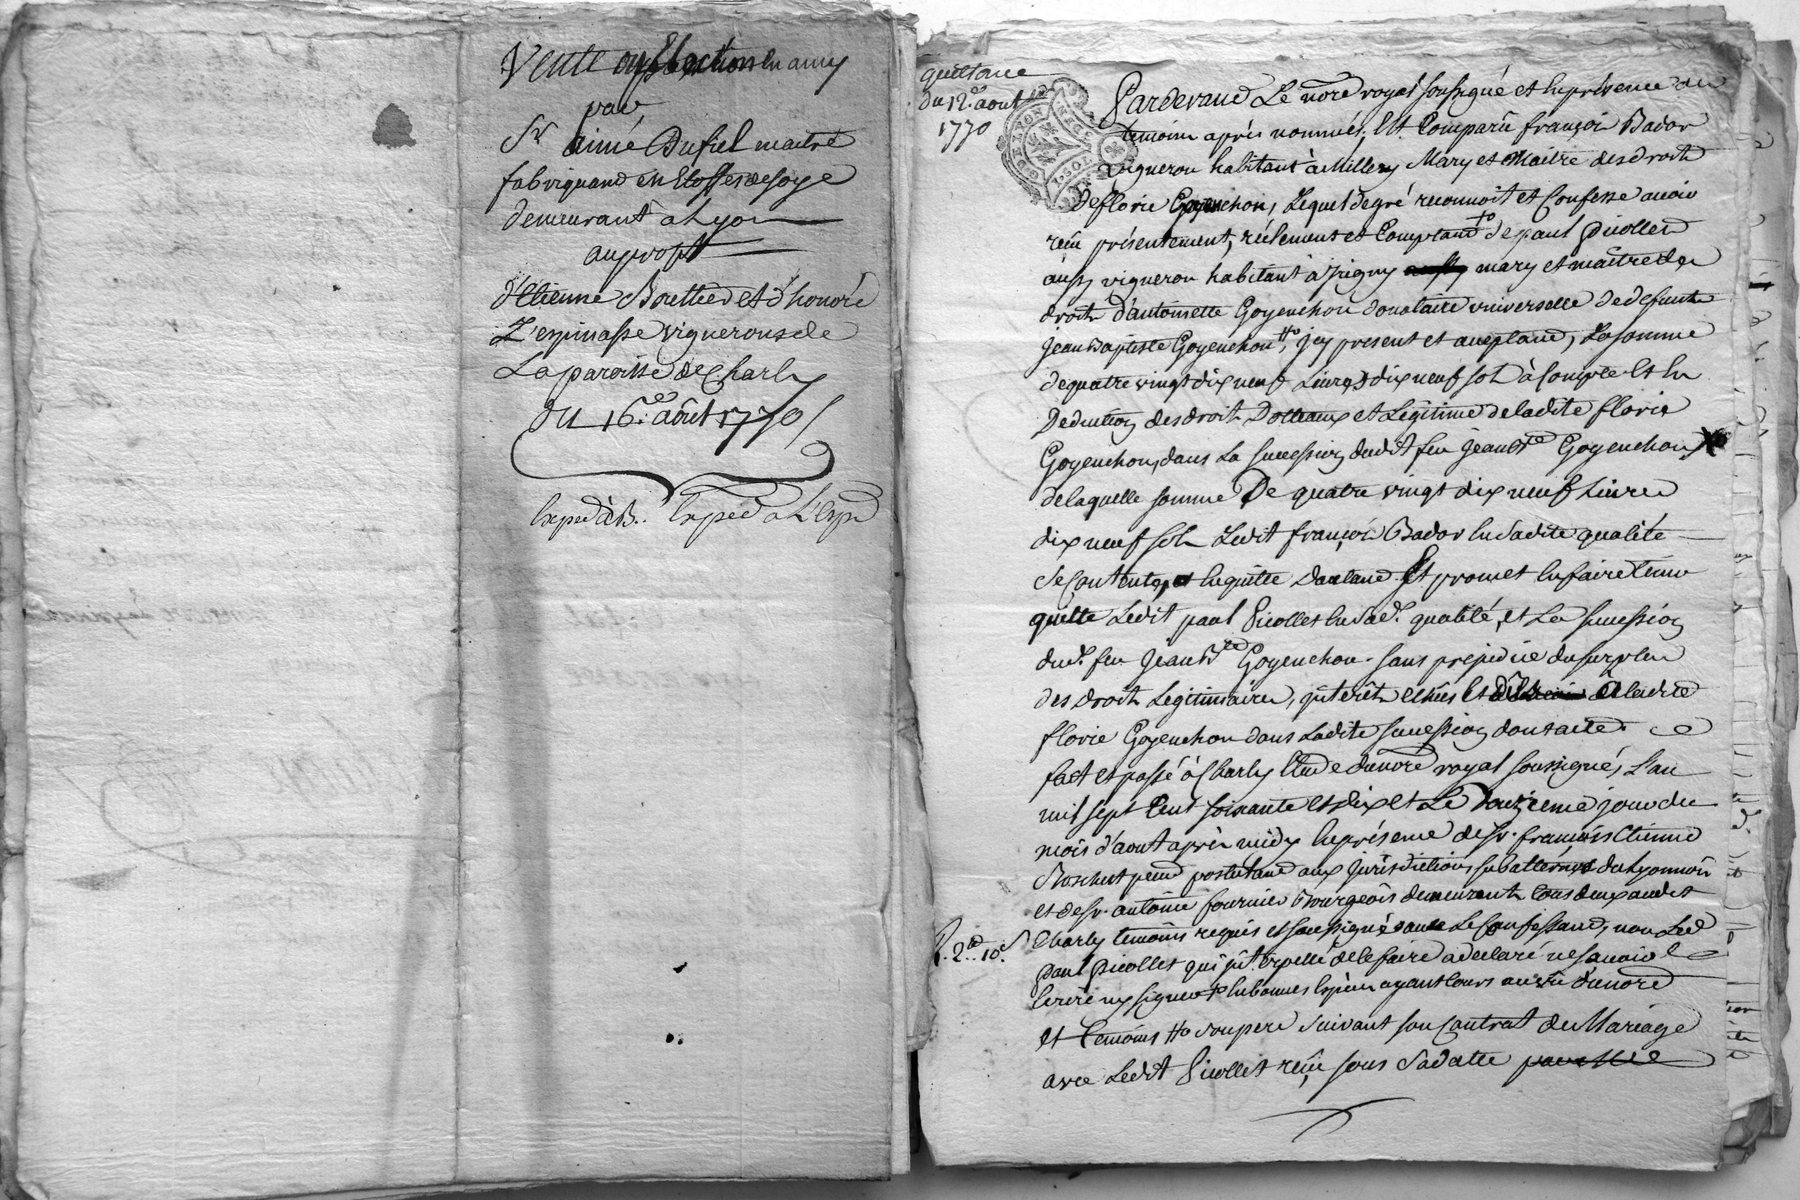 Vente
par
Sr aimé Dufiel maitre
fabriquand en Etoffes de soye
demeurant à Lyon
au profit
d'Etienne Bouttier et d'honoré
L'espinasse vignerons de
La paroisse de Charly
Du 16.e août 1770
Exped à B.. Exped a L'esp
quittance
du 12.e aout
1770
Pardevand Le nore royal soussigné et En présence des
temoins après nommés, Est Comparu françois Bador
vigneron habitant à Millery Mary et Maitre des droits
de florie Goyenchon, Lequel de gré reconnoit et Confesse avoir
reçu présentement, réelement et Comptand +° de paul Picollet
aussy vigneron habitant à Irigny mary et maitre des
droits d'antoinette Goyenchon donataire universelle de defunt
Jean Baptiste Goyenchon #°, icy present et acceptand, La somme
de quatre vingt dix neuf Livres dix neuf sols à Compte et En
Deduction des droits Dotteaux et Légitime de ladite florie
Goyenchon, dans La succession dudit feu Jean Bte Goyenchon
de laquelle somme De quatre vingt dix neuf Livres
dix neuf sols Ledit françois Bador En sadite qualité
se Contente, et En quitte Et promet En faire tenir
quitte Ledit paul Picollet En sad. qualité, et La succession
dud. feu Jean Bte Goyenchon. sans préjudice du surplus
des droits Legitimaires, intérêts Echus Et de ladite
florie Goyenchon dans Ladite succession dont acte.
fait et passé à Charly Etude du nore royal soussigné, L'an
mil sept Cent soixante et dix et Le Douzieme jour du
mois d'aout après midy En présence de sr. francois Etienne
Rochut postuland aux Jurisdictions subalternes du Lyonnois
et de sr. antoine fournier Bourgeois demeurants tous deux audit
Charly temoins requis et soussignés avec Le Confessand, non Led
R. 2.tt 10.s
paul Picollet qui de le faire a declaré ne sçavoir
Ecrire ny signer +° En bonnes Espèces ayant Cours au vu du nore
et temoins #° son pere suivant son Contrat de Mariage
avec Ledit Picollet reçu sous sa datte